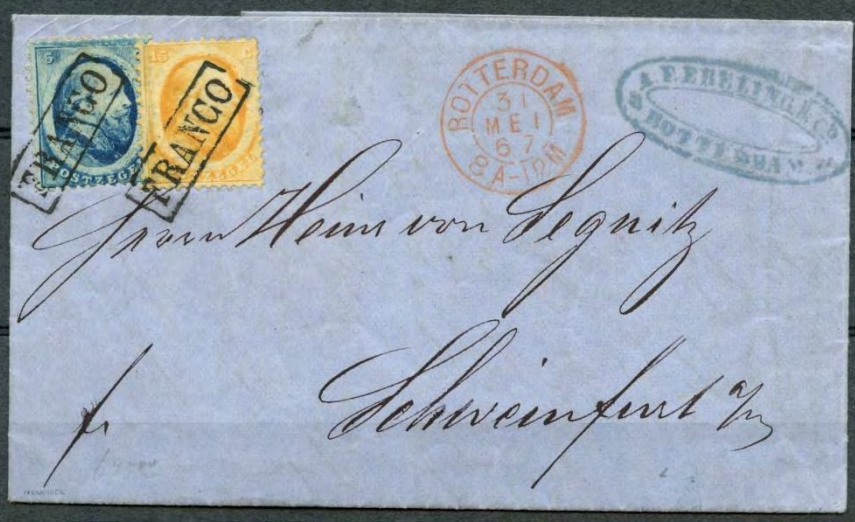 5
FRANCO
POSTZEGEL
15 C
FRANCO
ROTTERDAM
31
MEI
67
8A-1PM
A.F. EBELING & Co
ROTTERDAM
Herrn Heinr von Segnitz
fr
Schweinfurt a/m